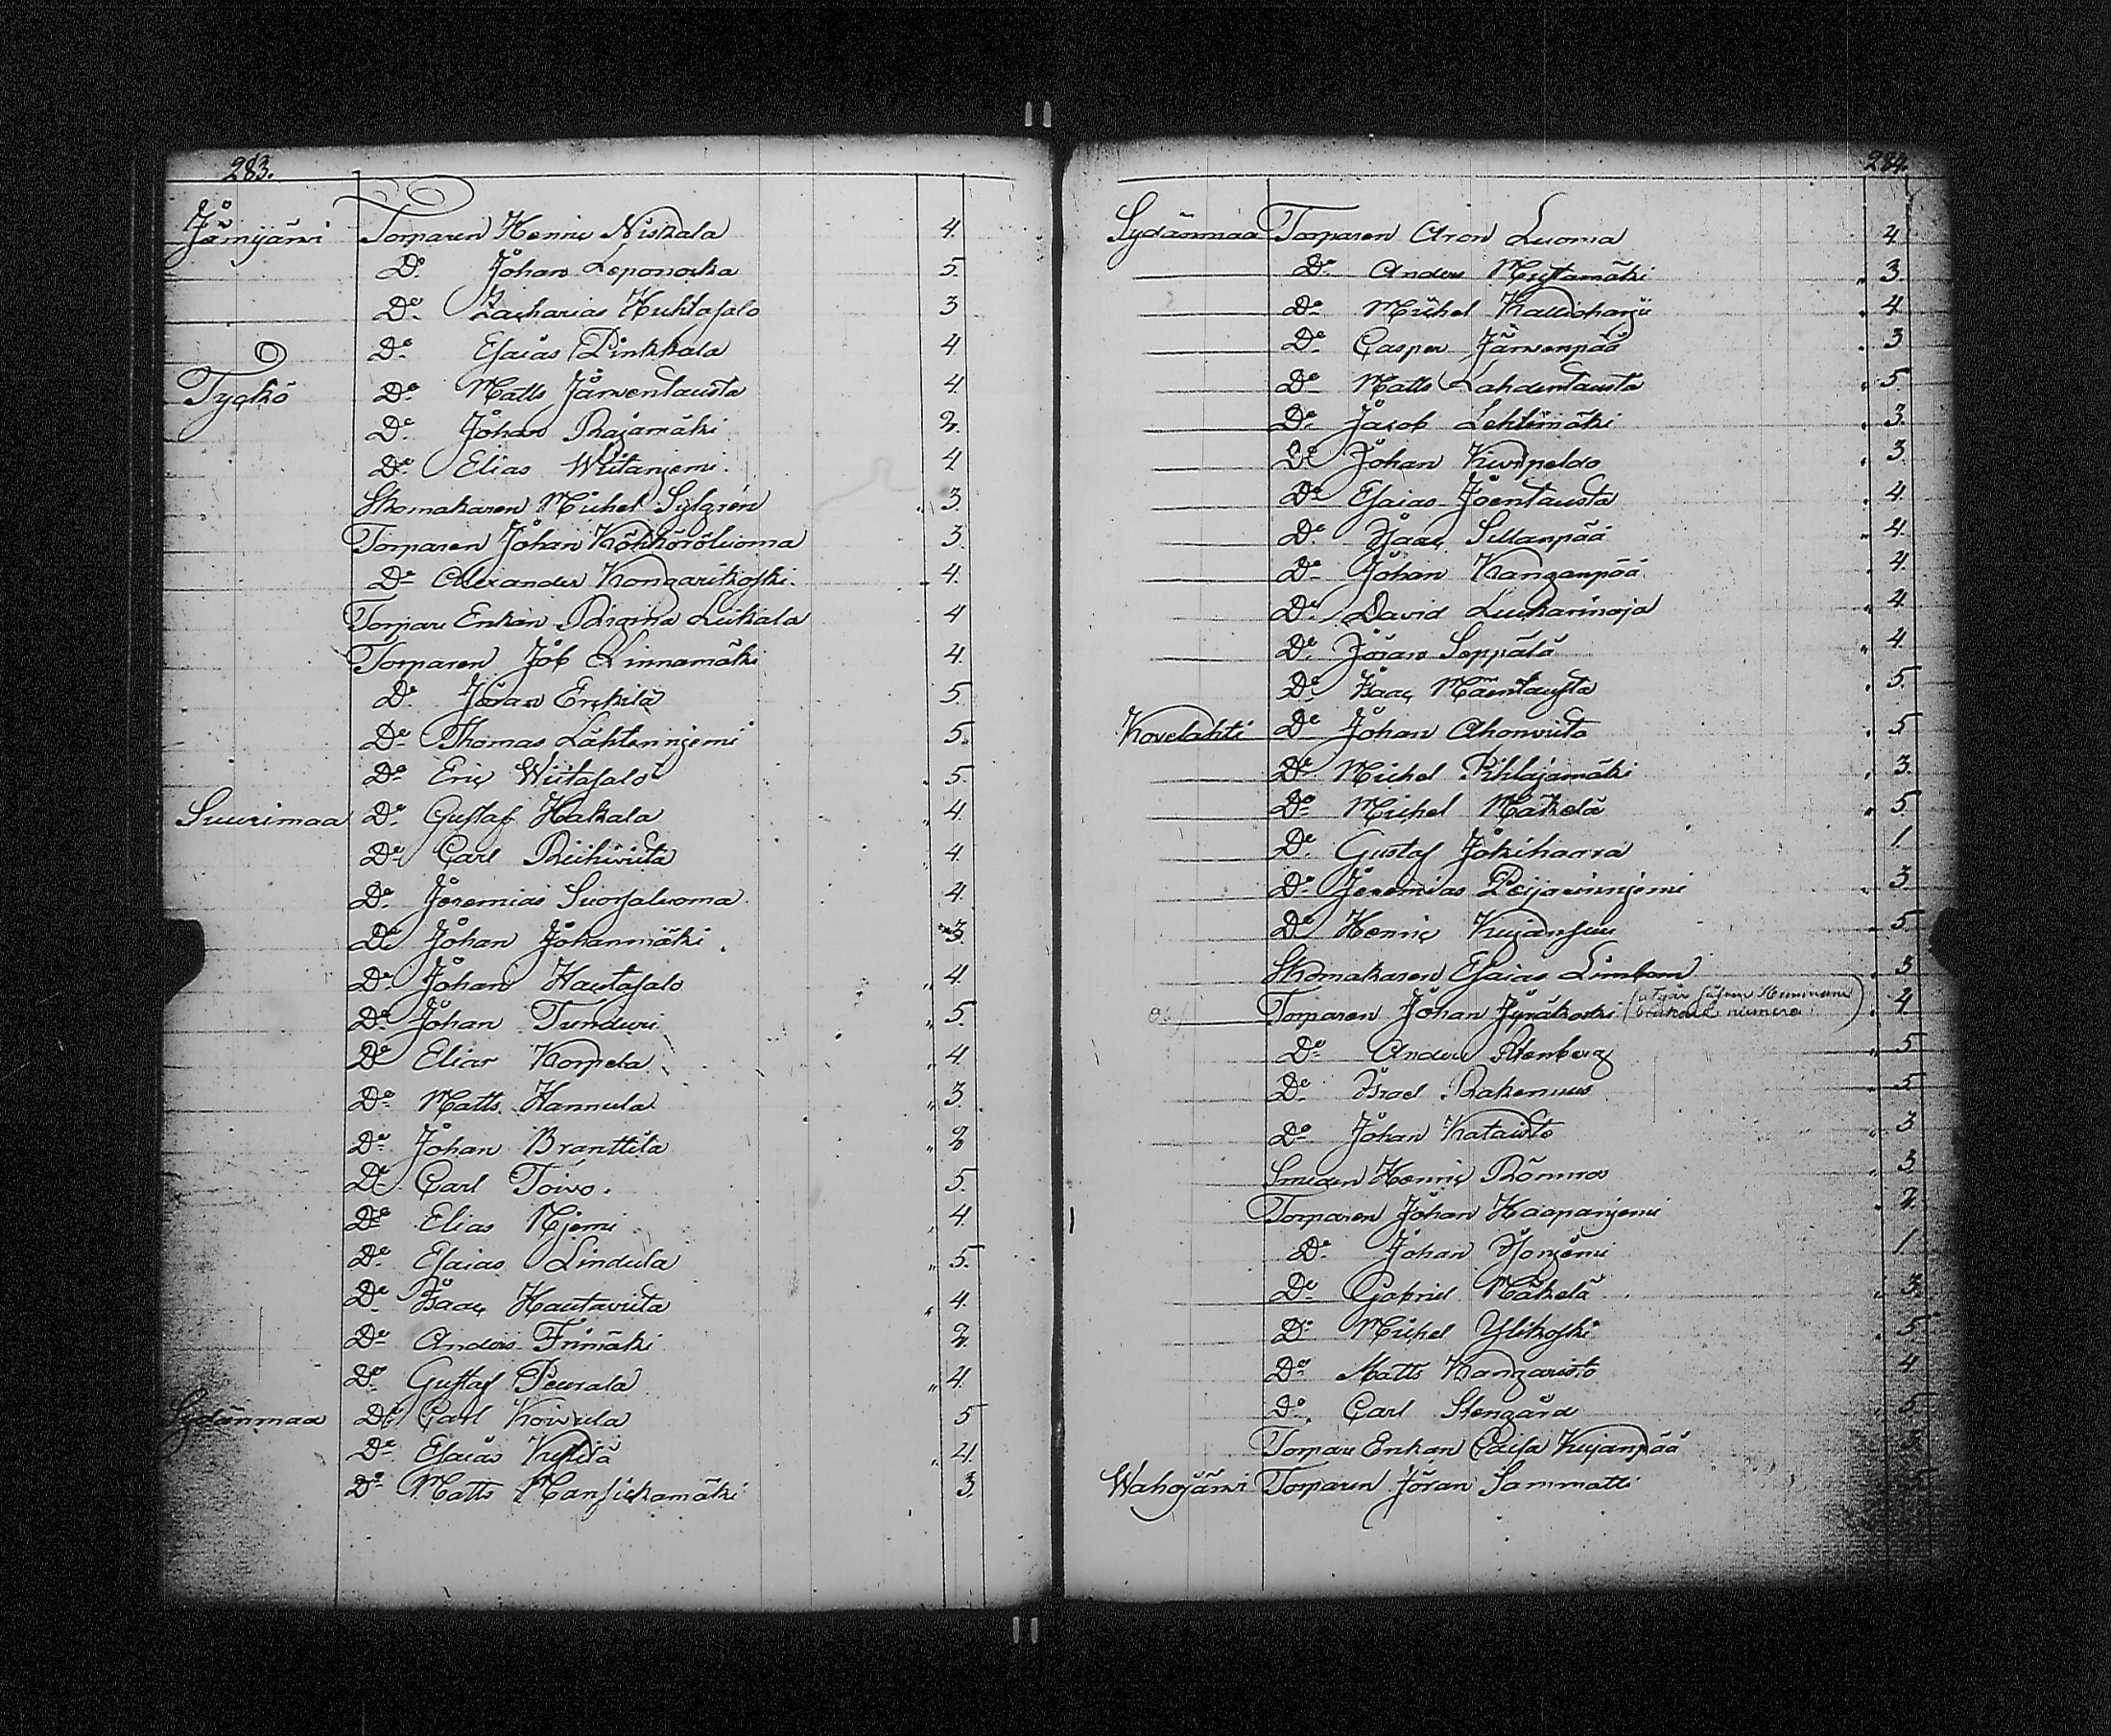 283.
Jämijärvi Torparen Henric Niskala 4.
Do Johan Leponoska 5.
Do Zacharias Huhtasalo 3
Do Esaias Pinkkala 4.
Tyckö Do Matts Järventausta 4.
Do Johan Rajamäki 2.
Do Elias Wiitanjemi. 4
Skomakaren Michel Sylgrén „ 3.
Torparen Johan Kohköröluoma 3.
Do Alexander Kongarikoski. 4.
Torpare Enkan Regina Leikala 4
Torparen Job Linnamäki 4.
Do Jöran Erckilä 5.
Do Thomas Lähtennjemi 5.
Do Eric Wiitasalo „ 5.
Suurimaa Do Gustaf Hakala „ 4.
Do Carl Reikivuita 4.
Do Jeremias Suorsaluoma 4.
Do Johan Johanmäki. 3.
Do Johan Hautasalo „ 4.
Do Johan Tunduri „ 5.
Do Elias Korpela „ 4
Do Matts Hannula „ 3.
Do Johan Branttila „ 2
Do Carl Toivo. 5.
Do Elias Njemi „ 4.
Do Esaias Lindula „ 5.
Do Isaac Hautaviita „ 4.
Do Anders Frimäki 2.
Do Gustaf Peurala „ 4.
Sydänmaa Do Carl Koivula 5
Do Esaias Kyhlä „ 4.
Do Matts Mansickamäki 3.
284.
Sydänmaa Torparen Aron Luoma 4
Do Anders Mustamäki „ 3.
Do Michel Kallioharju „ 4
Do Casper Järvenpää 3
Do Matts Lahdentausta „ 5
Do Jacob Lehtimäki „ 3.
Do Johan Kuipeldo „ 3.
Do Esaias Joentausta „ 4.
Do Isaac Sillanpää „ 4.
Do Johan Kanganpää 4.
Do David Luckarinoja „ 4.
Do Jöran Seppälä „ 4.
Do Isaac Mäentausta „ 5.
Kovelahti Do Johan Ahonviita „ 5
Do Michel Pihlajamäki „ 3.
Do Michel Mäkelä „ 5
Do Gustaf Jokihaara 1
Do Jeremias Peijarinnjemi „ 3
Do Henric Kujansuu 5.
Skomakaren Esaias Limbom „ 3
Torparen Johan Jyräkoski 4.
Do Anders Stenberg „ 5
Do Israel Rakennus „ 5
Do Johan Kataisto „ 3
Smeden Henric Römra „ 3.
Torparen Johan Haapanjemi „ 2.
Do Johan Isonjemi 1
Do Gabriel Mäkelä „ 3.
Do Michel Ylikoski „ 5
Do Matts Kangaristo 4
Do Carl Stengård 5
Torpare Enkan Caisa Kujanpää
Wahojärvi Torparen Jöran Sammatti 5